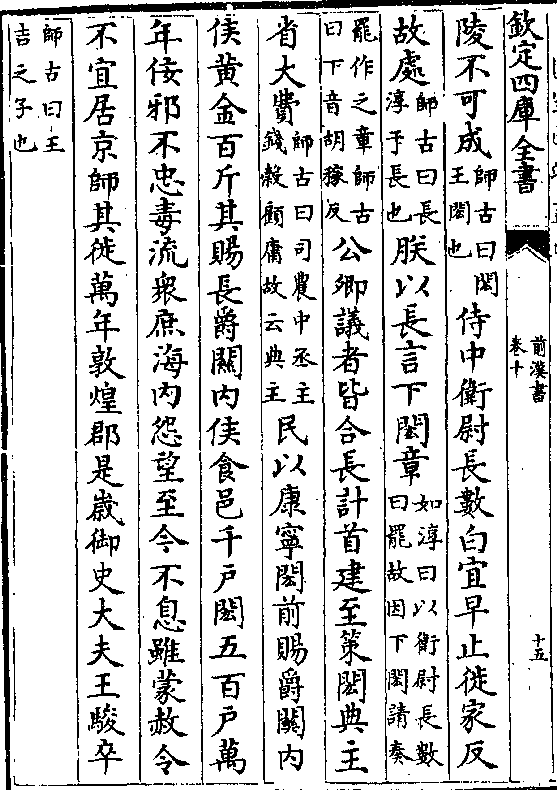 欽定四庫全書
前漢書
卷十
十五
陵不可成師古曰閎王閎也侍中衛尉長數白宜早止徙家反
故處師古曰長淳于長也朕以長言下閎章如淳曰以衛尉長數曰罷故因下閎請奏
罷作之章師古曰下音胡稼反公卿議者皆合長計首建至策閎典主
省大費師古曰司農中丞主錢榖顧庸故云典主民以康寧閎前賜爵關内
侯黃金百斤其賜長爵關内侯食邑千戸閎五百戸萬
年佞邪不忠毒流衆庶海内怨望至今不息雖蒙赦令
不宜居京師其徙萬年敦煌郡是歲御史大夫王駿卒
師古曰王吉之子也